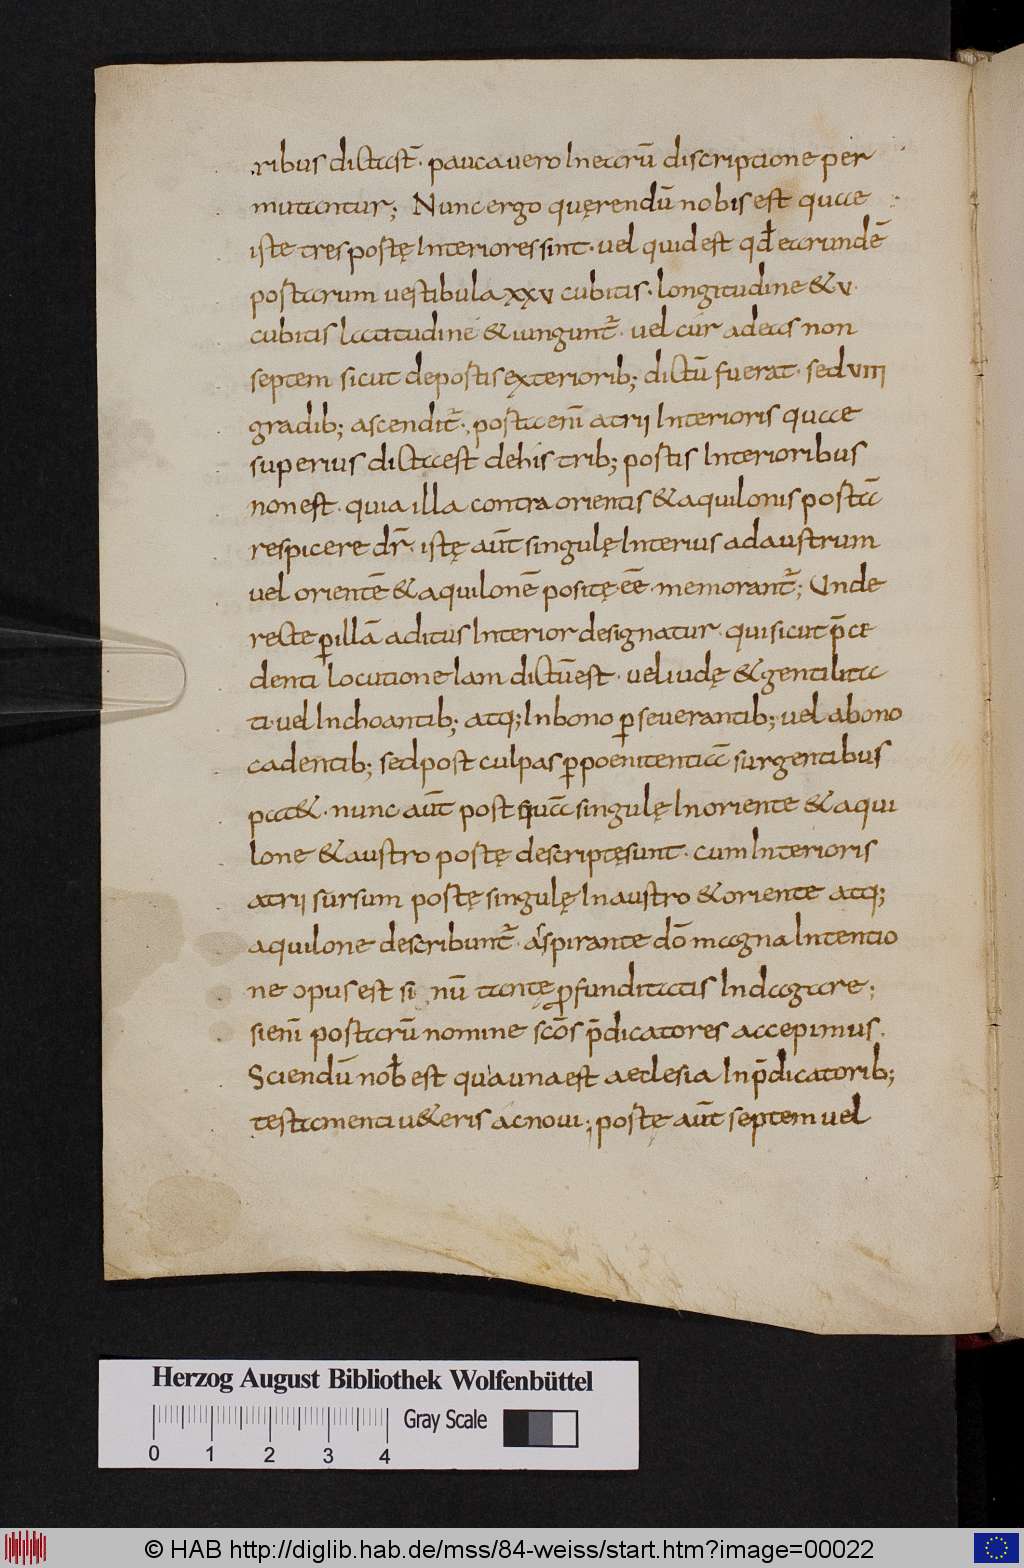 ribus dictast̄· pauca vero In earū discriptione per
mutantur; Nunc ergo quęrendū nobis est quae
iste tres portę Interiores sint· vel quid est qđ earundē
portarum vestibula xxv cubitis· longitudine & v·
cubitis latitudine & iungunt᷑· vel cur ad eas non
septem sicut deportis exteriorib; dictū fuerat· sed viii
gradib; ascendit᷑· porta enī atrii Interioris quae
superius dicta est de his trib; portis Interioribus
non est· quia illa contra orientis & aquilonis portā
respicere dr̄· istę aūt singulę Interius ad austrum
vel orientē & aquilonē positę· eē· memorant᷑; Unde
recte ꝑ illā aditus Interior designatur· qui sicut p̄ce
denti locutione Iam dictū est· vel iudę & gentilita
ti· vel Inchoantib; atq; In bono ꝑseverantib; vel a bono
cadentib; sed post culpas ꝑ poenitentiā surgentibus
pat&· nunc aūt post quā singulę In oriente & aqui
lone & austro portę descriptę sunt· cum Interioris
atrii sursum portę singulę In austro & oriente atq;
aquilone describunt᷑· aspirante dō magna Intentio
ne opus est si nū tantę ꝓfunditatis Indagare;
si enī portarū nomine scōs p̄dicatores accepimus.
Sciendū nob̄ est quia una est aeclesia In p̄dicatorib;
testamenti v&eris ac novi; portę aūt septem vel
Herzog August Bibliothek Wolfenbüttel
Gray Scale
0 1 2 3 4
© HAB http://diglib.hab.de/mss/84-weiss/start.htm?image=00022